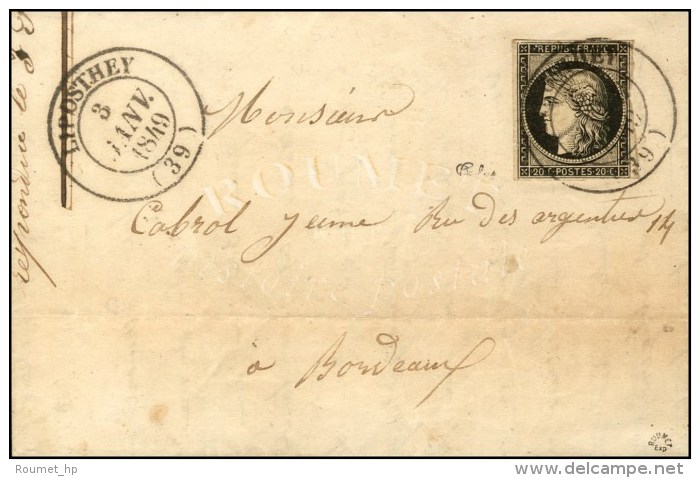 LIPOSTHEY
3
JANV.
1849
(39)
REPUB. FRANC.
20 C. POSTES 20 C.
(39)
répondue le
Monsieur
ROUMET
Histoire Postale
Cabrol jeune Rue des argentiers 14
à Bordeaux
ROUMET
Exp
Roumet_hp
www.delcampe.net